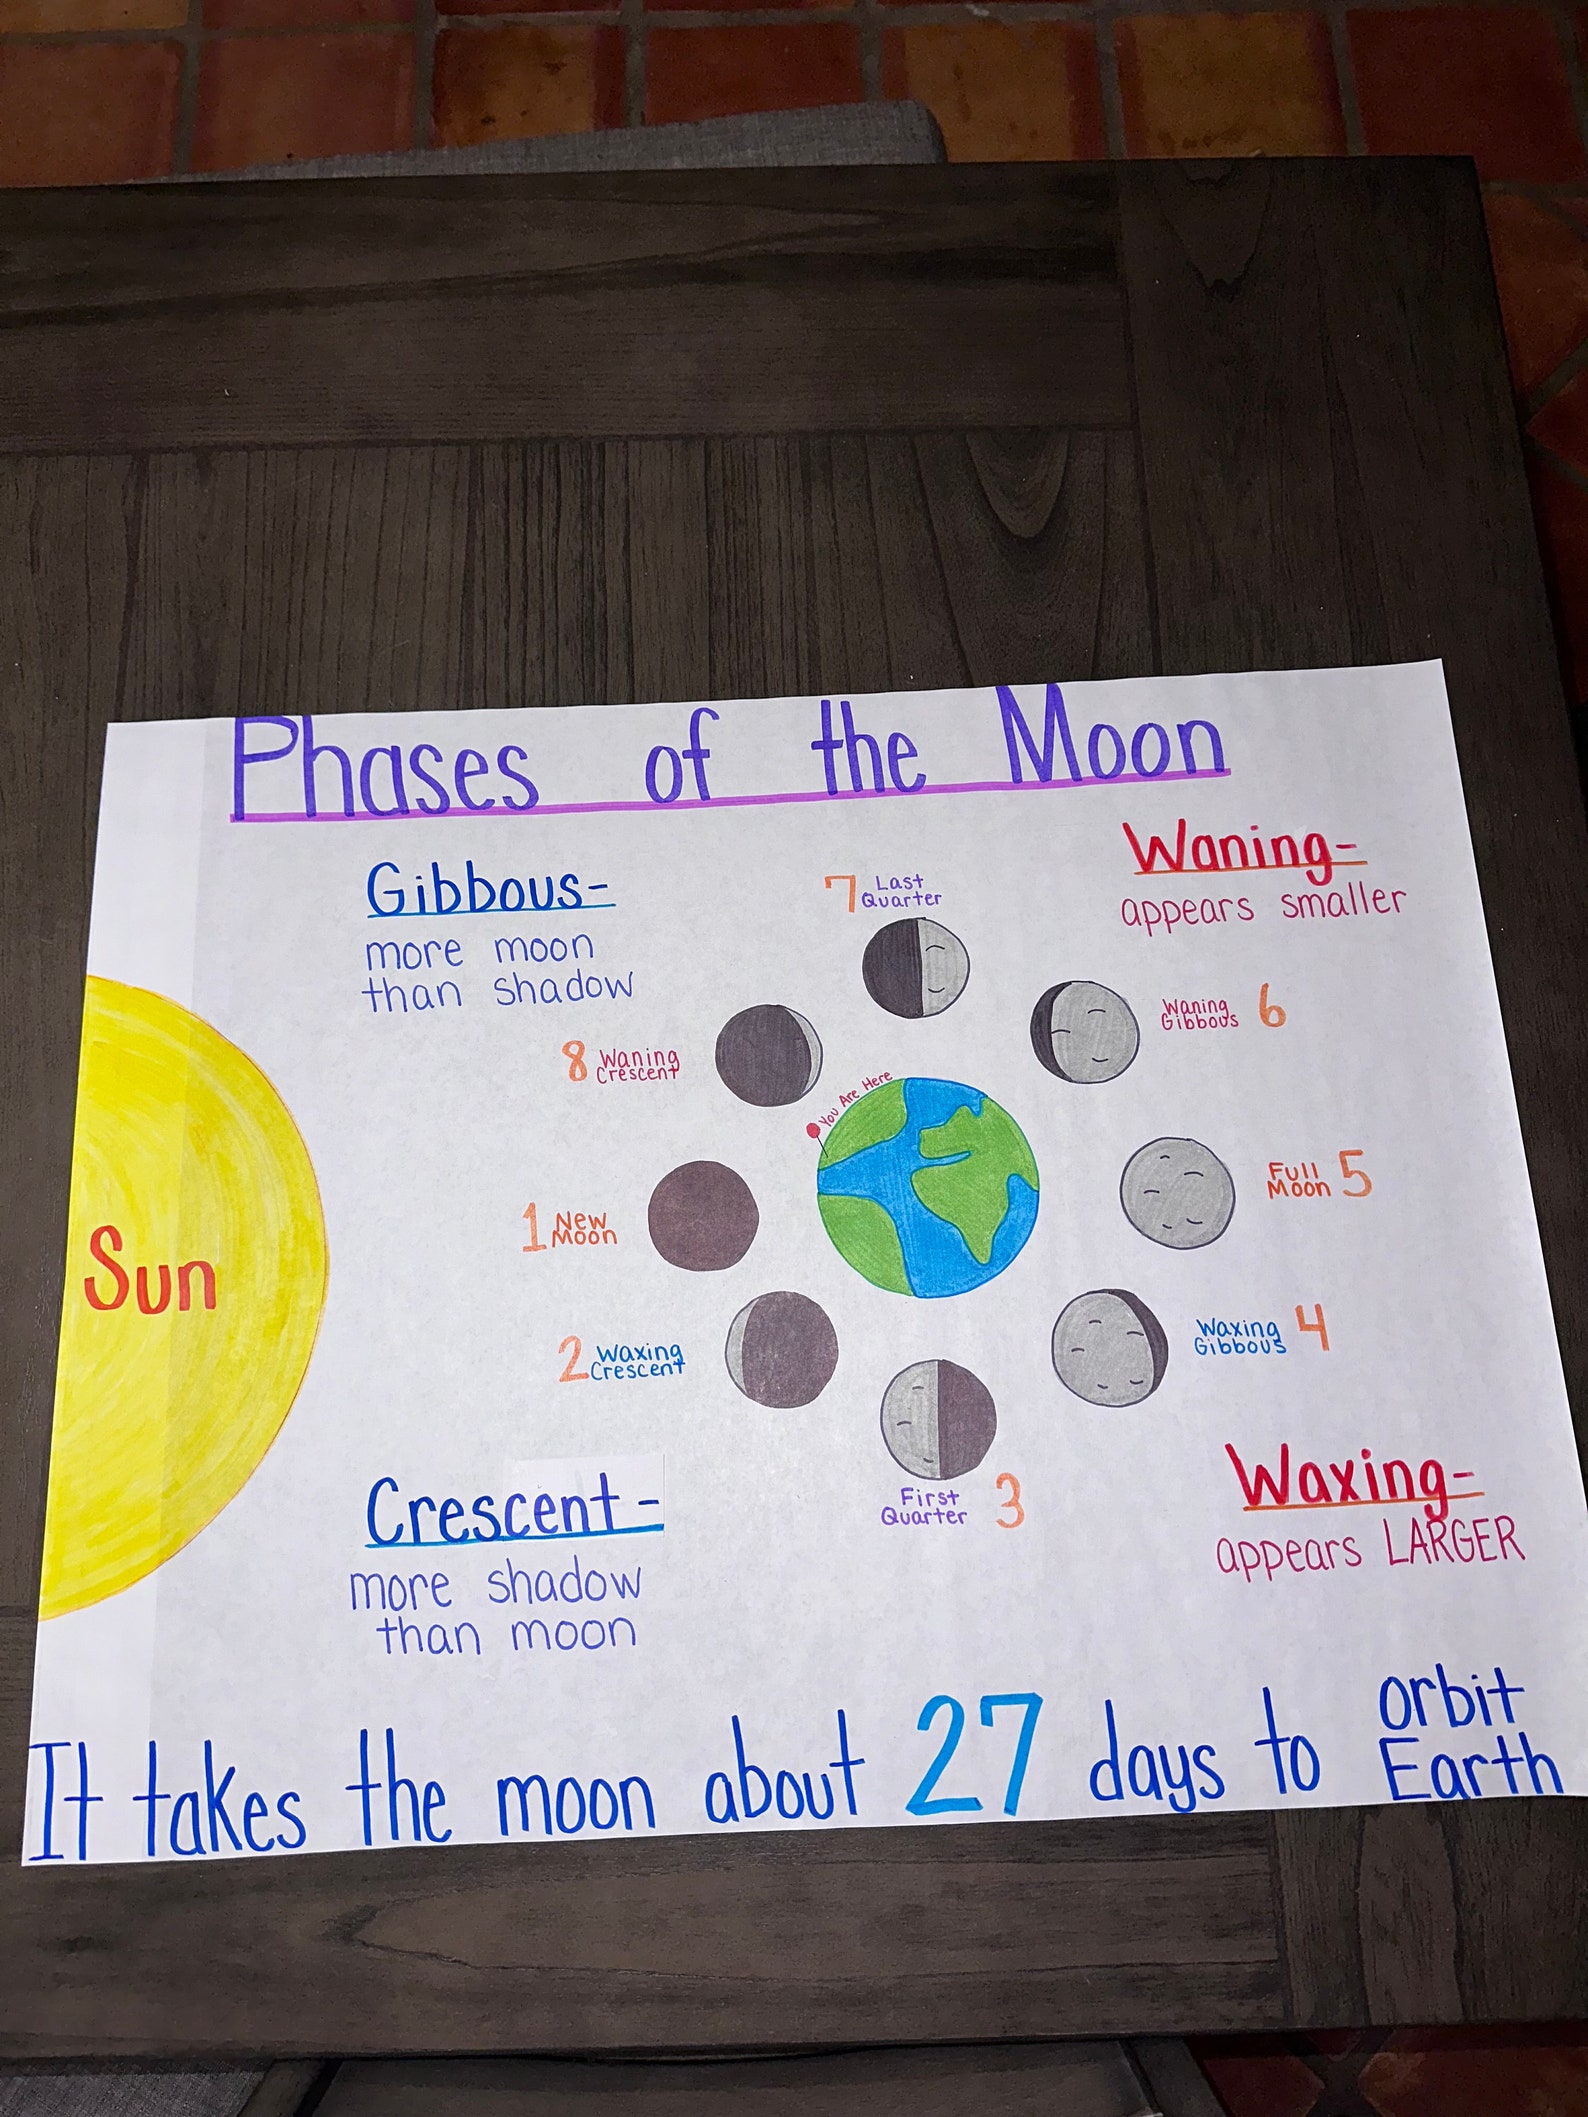 Phases of the Moon
Gibbous-
more moon
than shadow
Waning-
appears smaller
7 Last
Quarter
Waning
Gibbous 6
8 Waning
Crescent
You Are Here
Full
Moon 5
1 New
Moon
Sun
Waxing
Gibbous 4
2 Waxing
Crescent
First
Quarter 3
Crescent-
more shadow
than moon
Waxing-
appears LARGER
It takes the moon about 27 days to orbit
Earth